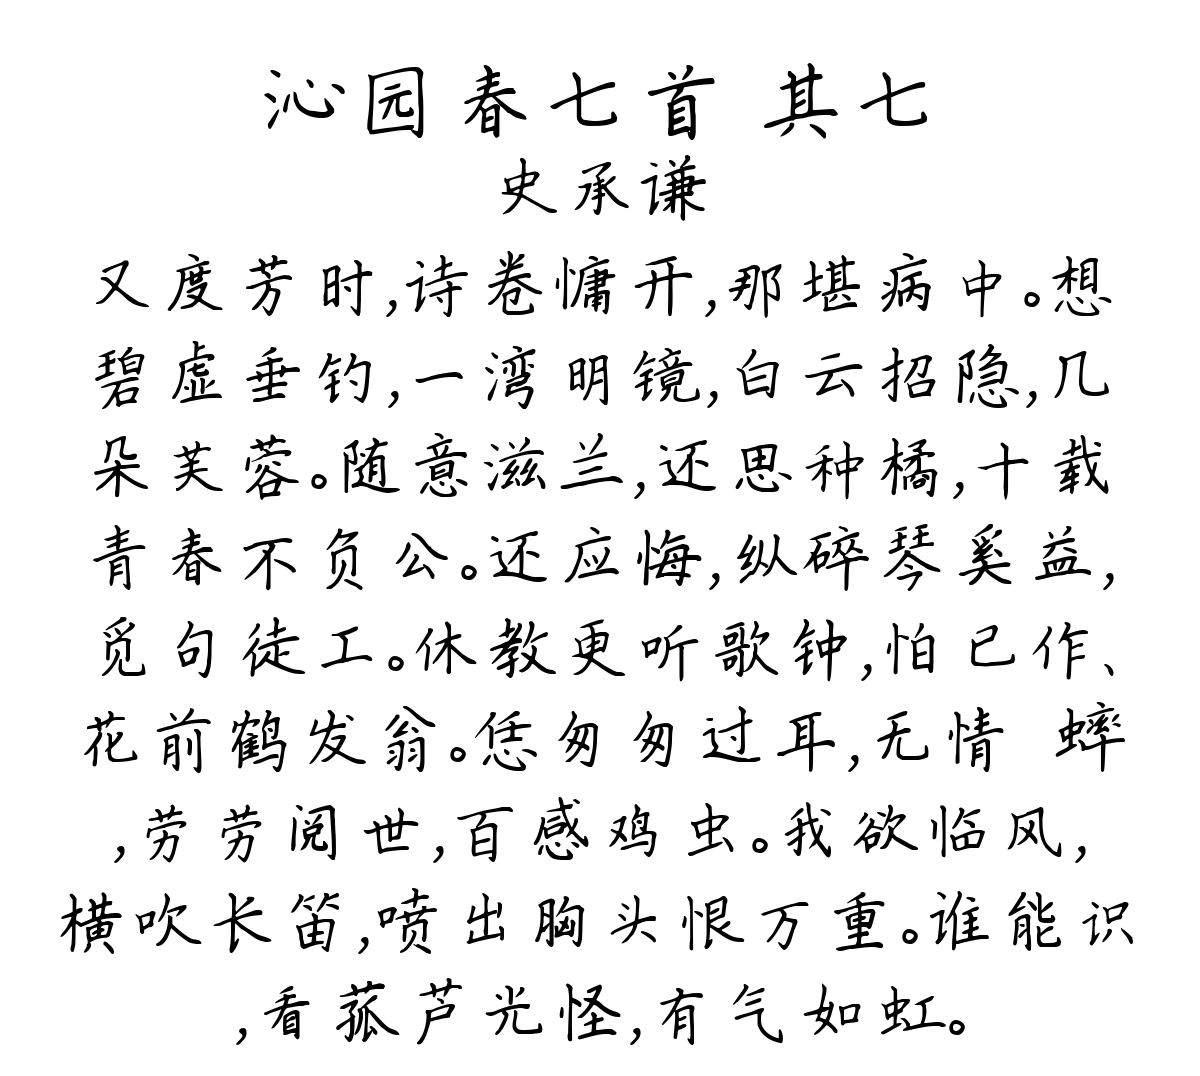 沁园春七首 其七
史承谦
又度芳时,诗卷慵开,那堪病中。想
碧虚垂钓,一湾明镜,白云招隐,几
朵芙蓉。随意滋兰,还思种橘,十载
青春不负公。还应悔,纵碎琴奚益,
觅句徒工。休教更听歌钟,怕已作、
花前鹤发翁。恁匆匆过耳,无情 蟀
,劳劳阅世,百感鸡虫。我欲临风,
横吹长笛,喷出胸头恨万重。谁能识
,看菰芦光怪,有气如虹。